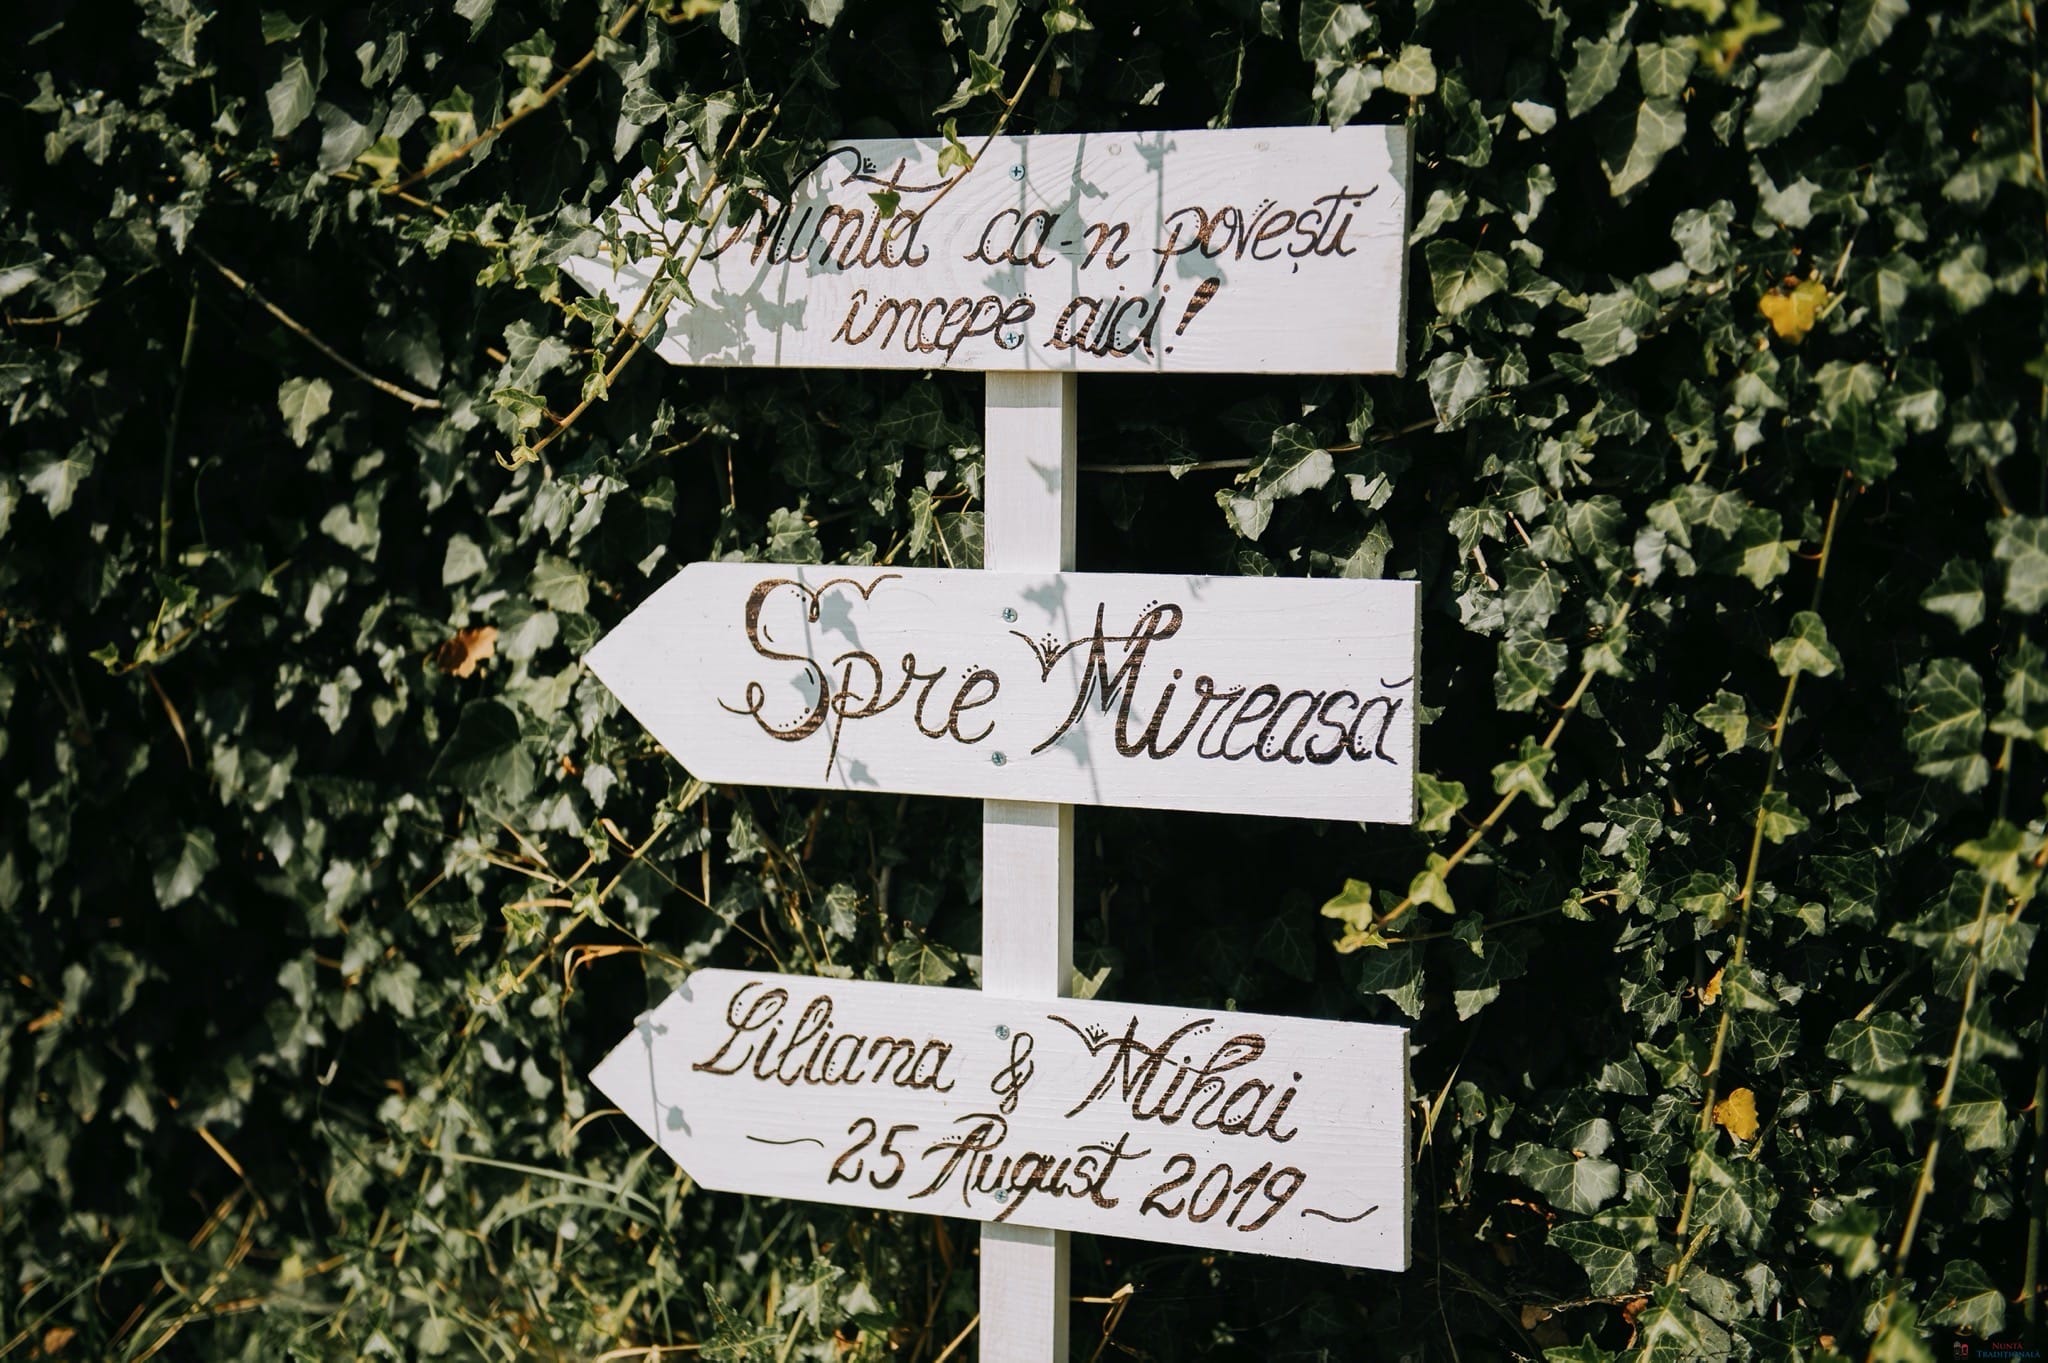 Nuntă ca-n povești
începe aici!
Spre Mireasă
Liliana & Mihai
~ 25 August 2019 ~
NUNTĂ
TRADIȚIONALĂ